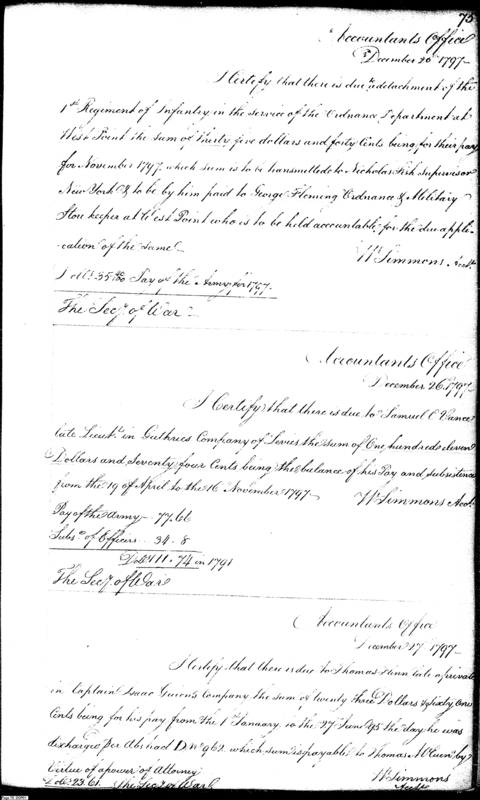 75
Accountants Office
December 26th 1797
I Certify that there is due to a detachment of the
1st Regiment of Infantry in the service of the Ordnance Department at
West Point the sum of thirty five dollars and forty Cents being for their pay
for November 1797. which sum is to be transmitted to Nicholas Fish Supervisor
New York & to be by him paid to George Fleming Ordnance & Military
Store keeper at West Point who is to be held accountable for the due appli-
-cation of the same
Wm Simmons Acctt
Dolls 35 40/100 Pay of the Army for 1797.
The Secy of War
Accountants Office
December 26, 1797
I Certify that there is due to Samuel C Vance
late Lieutt in Guthries Company of Levies the sum of One hundred & eleven
Dollars and Seventy four Cents being the balance of his Pay and subsistence
from the 19 of April to the 16 November 1797
Wm Simmons Acct
Pay of the Army 77.66
Subs of Officers 34.8
Dolls 111.74 in 1791
The Secy of War
Accountants Office
December 17 1797
I Certify that there is due to Thomas Flinn late a private
in Captain Isaac Guion's Company the sum of twenty three Dollars & sixty one
Cents being for his pay from the 1 January to the 27 June 95 the day he was
discharged per Abstract D. No 962. which sum is payable to Thomas McEuen by
Virtue of a power of Attorney
Wm Simmons
Acctt
Dolls 23.61. The Sec of War